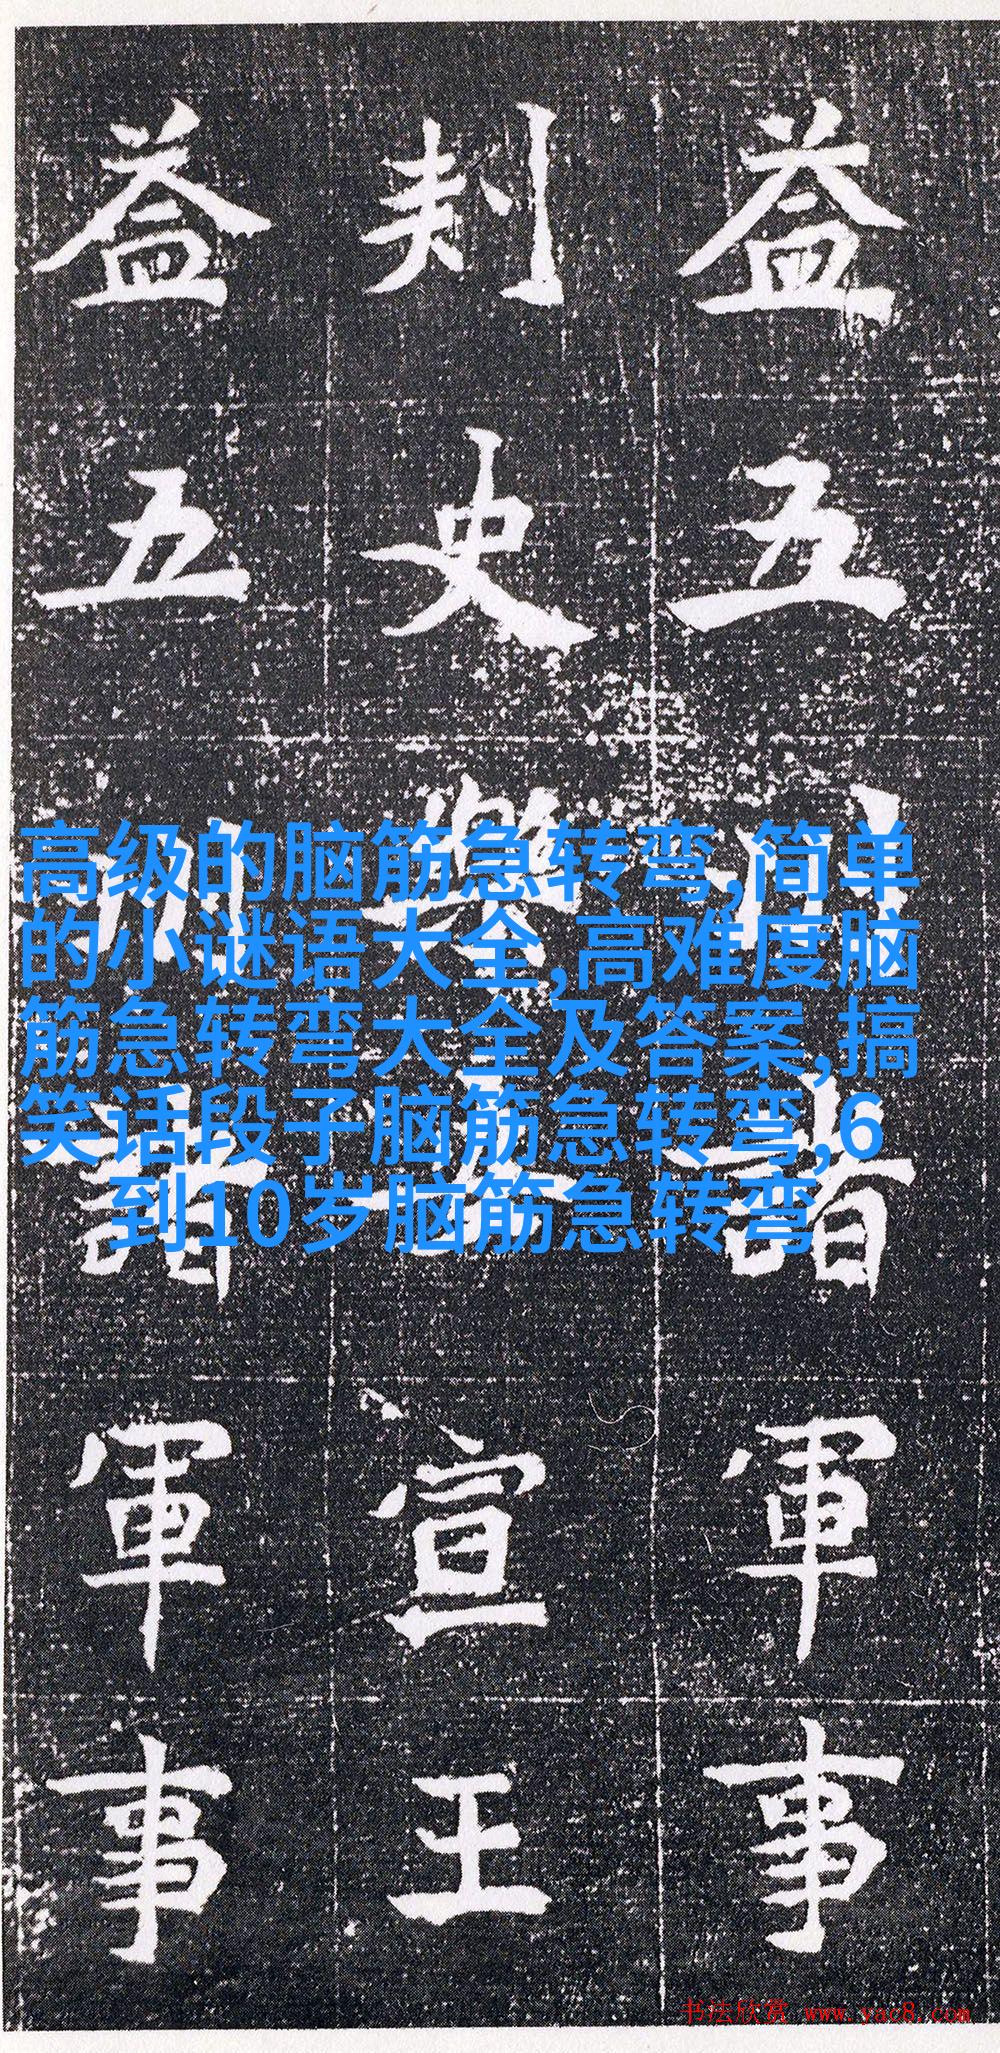 益五州諸軍事
刾史樂宣王
益五州諸軍事
高级的脑筋急转弯,简单
的小谜语大全,高难度脑
筋急转弯大全及答案,搞
笑话段子脑筋急转弯,6
到10岁脑筋急转弯
书法欣赏 www.yac8.com